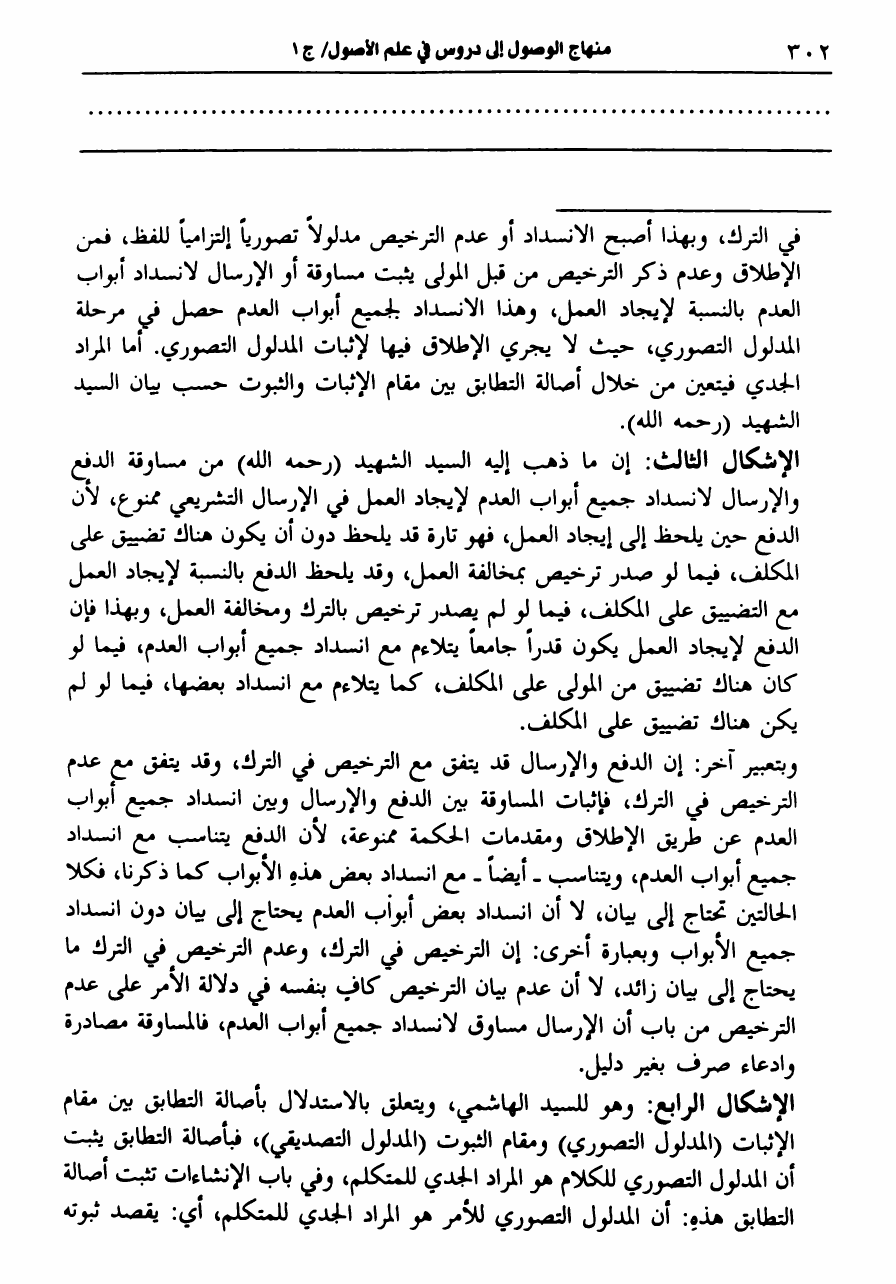 ٣٠٢ منهاج الوصول إلى دروس في علم الأصول/ ج ١
في الترك، وبهذا أصبح الانسداد أو عدم الترخيص مدلولاً تصورياً إلتزامياً للفظ، فمن
الإطلاق وعدم ذكر الترخيص من قبل المولى يثبت مساوقة أو الإرسال لانسداد أبواب
العدم بالنسبة لإيجاد العمل، وهذا الانسداد لجميع أبواب العدم حصل في مرحلة
المدلول التصوري، حيث لا يجري الإطلاق فيها لإثبات المدلول التصوري. أما المراد
الجدي فيتعين من خلال أصالة التطابق بين مقام الإثبات والثبوت حسب بيان السيد
الشهيد (رحمه الله).
الإشكال الثالث: إن ما ذهب إليه السيد الشهيد (رحمه الله) من مساوقة الدفع
والإرسال لانسداد جميع أبواب العدم لإيجاد العمل في الإرسال التشريعي ممنوع، لأن
الدفع حين يلحظ إلى إيجاد العمل، فهو تارة قد يلحظ دون أن يكون هناك تضييق على
المكلف، فيما لو صدر ترخيص بمخالفة العمل، وقد يلحظ الدفع بالنسبة لإيجاد العمل
مع التضييق على المكلف، فيما لو لم يصدر ترخيص بالترك ومخالفة العمل، وبهذا فإن
الدفع لإيجاد العمل يكون قدراً جامعاً يتلاءم مع انسداد جميع أبواب العدم، فيما لو
كان هناك تضييق من المولى على المكلف، كما يتلاءم مع انسداد بعضها، فيما لو لم
يكن هناك تضييق على المكلف.
وبتعبير آخر: إن الدفع والإرسال قد يتفق مع الترخيص في الترك، وقد يتفق مع عدم
الترخيص في الترك، فإثبات المساوقة بين الدفع والإرسال وبين انسداد جميع أبواب
العدم عن طريق الإطلاق ومقدمات الحكمة ممنوعة، لأن الدفع يتناسب مع انسداد
جميع أبواب العدم، ويتناسب ـ أيضاً ـ مع انسداد بعض هذهِ الأبواب كما ذكرنا، فكلا
الحالتين تحتاج إلى بيان، لا أن انسداد بعض أبواب العدم يحتاج إلى بيان دون انسداد
جميع الأبواب وبعبارة أخرى: إن الترخيص في الترك، وعدم الترخيص في الترك ما
يحتاج إلى بيان زائد، لا أن عدم بيان الترخيص كافٍ بنفسه في دلالة الأمر على عدم
الترخيص من باب أن الإرسال مساوق لانسداد جميع أبواب العدم، فالمساوقة مصادرة
وادعاء صرف بغير دليل.
الإشكال الرابع: وهو للسيد الهاشمي، ويتعلق بالاستدلال بأصالة التطابق بين مقام
الإثبات (المدلول التصوري) ومقام الثبوت (المدلول التصديقي)، فبأصالة التطابق يثبت
أن المدلول التصوري للكلام هو المراد الجدي للمتكلم، وفي باب الإنشاءات تثبت أصالة
التطابق هذهِ: أن المدلول التصوري للأمر هو المراد الجدي للمتكلم، أي: يقصد ثبوته